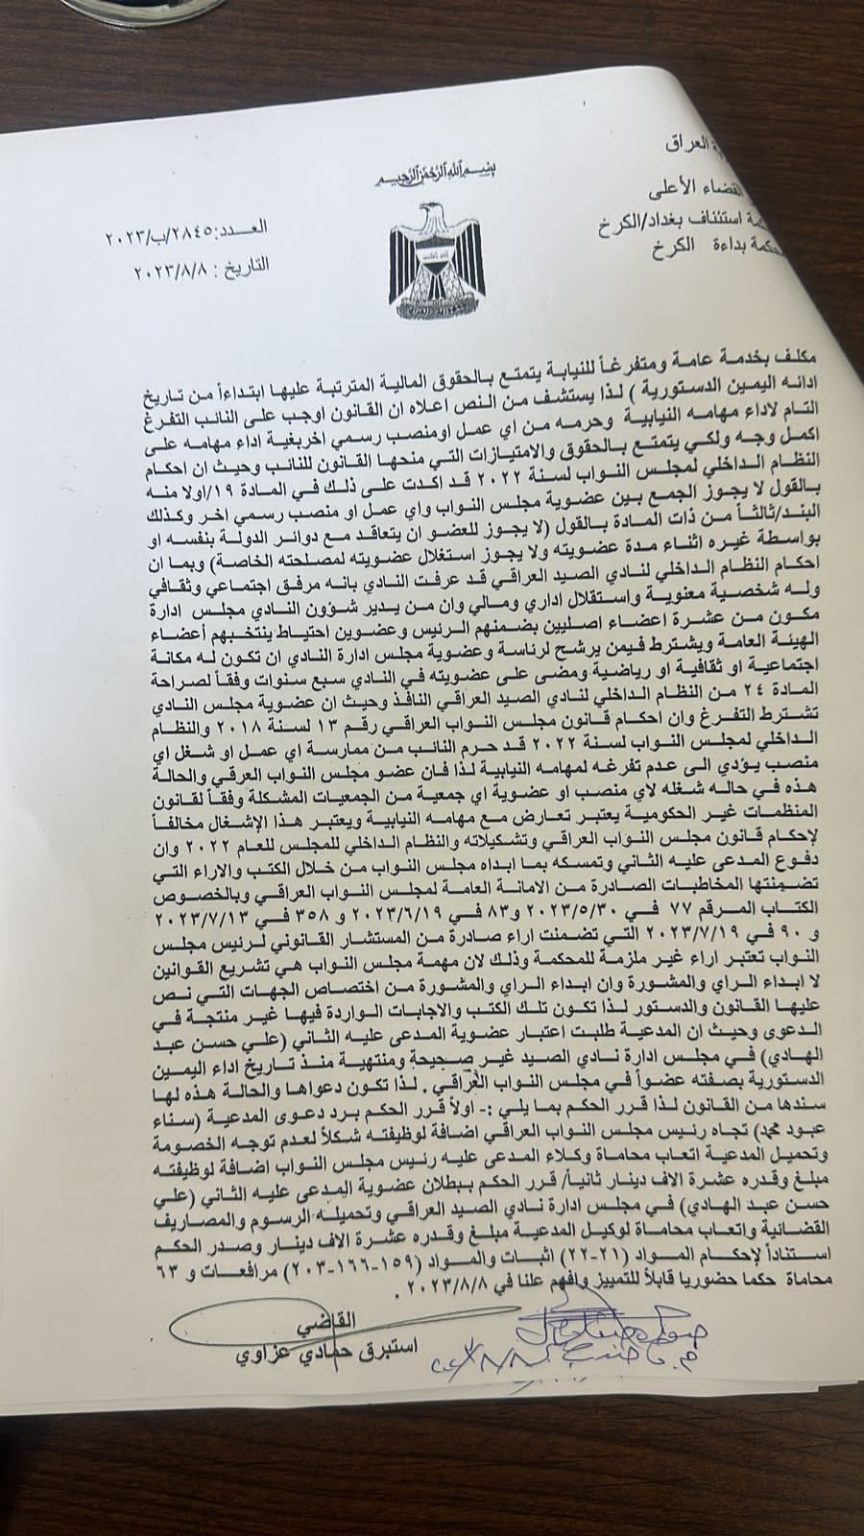 بسم الله الرحمن الرحيم
العراق
القضاء الأعلى
استئناف بغداد/الكرخ
بداءة الكرخ
العـــدد:٢٨٤٥/ب/٢٠٢٣
التاريخ : ٢٠٢٣/٨/٨
مكلف بخدمة عامة ومتفرغاً للنيابة يتمتع بالحقوق المالية المترتبة عليها ابتداءاً من تاريخ
ادائه اليمين الدستورية ) لذا يستشف من النص اعلاه ان القانون اوجب على النائب التفرغ
التام لاداء مهامه النيابية وحرمه من اي عمل اومنصب رسمي اخربغية اداء مهامه على
اكمل وجه ولكي يتمتع بالحقوق والامتيازات التي منحها القانون للنائب وحيث ان احكام
النظام الداخلي لمجلس النواب لسنة ٢٠٢٢ قد اكدت على ذلك في المادة ١٩/اولا منه
بالقول لا يجوز الجمع بين عضوية مجلس النواب واي عمل او منصب رسمي اخر وكذلك
البند/ثالثاً من ذات المادة بالقول (لا يجوز للعضو ان يتعاقد مع دوائر الدولة بنفسه او
بواسطة غيره اثناء مدة عضويته ولا يجوز استغلال عضويته لمصلحته الخاصة) وبما ان
احكام النظام الداخلي لنادي الصيد العراقي قد عرفت النادي بانه مرفق اجتماعي وثقافي
وله شخصية معنوية واستقلال اداري ومالي وان من يدير شؤون النادي مجلس ادارة
مكون من عشرة اعضاء اصليين بضمنهم الرئيس وعضوين احتياط ينتخبهم أعضاء
الهيئة العامة ويشترط فيمن يرشح لرئاسة وعضوية مجلس ادارة النادي ان تكون له مكانة
اجتماعية او ثقافية او رياضية ومضى على عضويته في النادي سبع سنوات وفقاً لصراحة
المادة ٢٤ من النظام الداخلي لنادي الصيد العراقي النافذ وحيث ان عضوية مجلس النادي
تشترط التفرغ وان احكام قانون مجلس النواب العراقي رقم ١٣ لسنة ٢٠١٨ والنظام
الداخلي لمجلس النواب لسنة ٢٠٢٢ قد حرم النائب من ممارسة اي عمل او شغل اي
منصب يؤدي الى عدم تفرغه لمهامه النيابية لذا فان عضو مجلس النواب العرقي والحالة
هذه في حاله شغله لاي منصب او عضوية اي جمعية من الجمعيات المشكلة وفقاً لقانون
المنظمات غير الحكومية يعتبر تعارض مع مهامه النيابية ويعتبر هذا الإشغال مخالفاً
لإحكام قانون مجلس النواب العراقي وتشكيلاته والنظام الداخلي للمجلس للعام ٢٠٢٢ وان
دفوع المدعى عليه الثاني وتمسكه بما ابداه مجلس النواب من خلال الكتب والاراء التي
تضمنتها المخاطبات الصادرة من الامانة العامة لمجلس النواب العراقي وبالخصوص
الكتاب المرقم ٧٧ في ٢٠٢٣/٥/٣٠ و٨٣ في ٢٠٢٣/٦/١٩ و ٣٥٨ في ٢٠٢٣/٧/١٣
و ٩٠ في ٢٠٢٣/٧/١٩ التي تضمنت اراء صادرة من المستشار القانوني لرئيس مجلس
النواب تعتبر اراء غير ملزمة للمحكمة وذلك لان مهمة مجلس النواب هي تشريع القوانين
لا ابداء الراي والمشورة وان ابداء الراي والمشورة من اختصاص الجهات التي نص
عليها القانون والدستور لذا تكون تلك الكتب والاجابات الواردة فيها غير منتجة في
الدعوى وحيث ان المدعية طلبت اعتبار عضوية المدعى عليه الثاني (علي حسن عبد
الهادي) في مجلس ادارة نادي الصيد غير صحيحة ومنتهية منذ تاريخ اداء اليمين
الدستورية بصفته عضواً في مجلس النواب العراقي . لذا تكون دعواها والحالة هذه لها
سندها من القانون لذا قرر الحكم بما يلي :- اولاً قرر الحكم برد دعوى المدعية (سناء
عبود محمد) تجاه رئيس مجلس النواب العراقي اضافة لوظيفته شكلاً لعدم توجه الخصومة
وتحميل المدعية اتعاب محاماة وكلاء المدعى عليه رئيس مجلس النواب اضافة لوظيفته
مبلغ وقدره عشرة الاف دينار ثانياً/ قرر الحكم ببطلان عضوية المدعى عليه الثاني (علي
حسن عبد الهادي) في مجلس ادارة نادي الصيد العراقي وتحميله الرسوم والمصاريف
القضائية واتعاب محاماة لوكيل المدعية مبلغ وقدره عشرة الاف دينار وصدر الحكم
استناداً لإحكام المواد (٢١-٢٢) اثبات والمواد (١٥٩-١٦٦-٢٠٣) مرافعات و ٦٣
محاماة حكما حضوريا قابلاً للتمييز وافهم علنا في ٢٠٢٣/٨/٨ .
القاضي
استبرق حمادي عزاوي